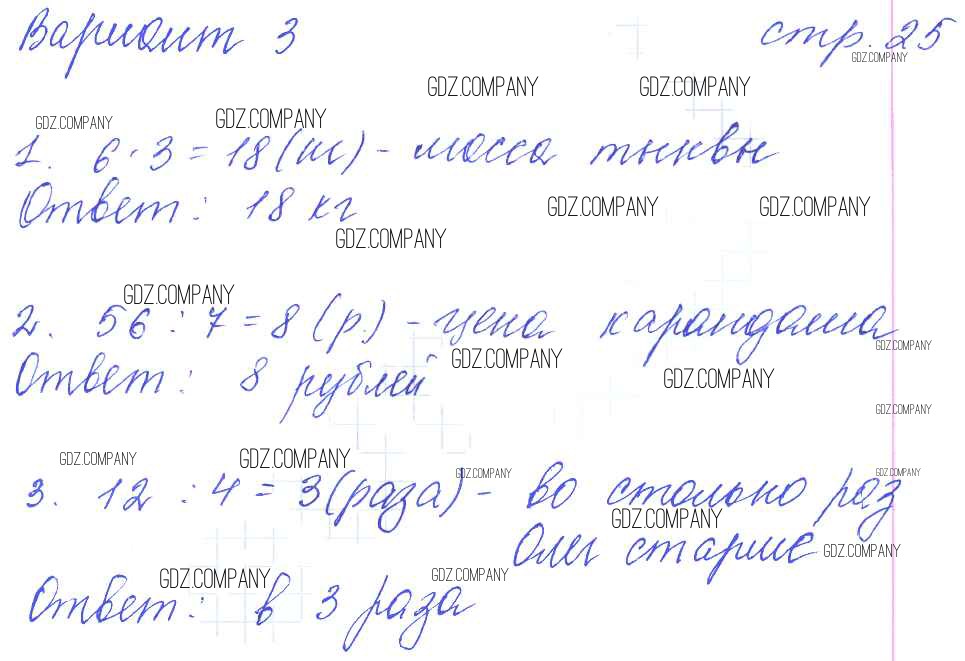 Вариант 3 стр. 25
GDZ.COMPANY
GDZ.COMPANY GDZ.COMPANY
GDZ.COMPANY GDZ.COMPANY
1. 6 · 3 = 18 (кг) - масса тыквы
Ответ: 18 кг
GDZ.COMPANY GDZ.COMPANY
GDZ.COMPANY
GDZ.COMPANY
2. 56 : 7 = 8 (р.) - цена карандаша
GDZ.COMPANY
GDZ.COMPANY
Ответ: 8 рублей
GDZ.COMPANY
GDZ.COMPANY
GDZ.COMPANY GDZ.COMPANY
GDZ.COMPANY GDZ.COMPANY
3. 12 : 4 = 3 (раза) - во столько раз
GDZ.COMPANY
Олег старше
GDZ.COMPANY
GDZ.COMPANY GDZ.COMPANY
Ответ: в 3 раза